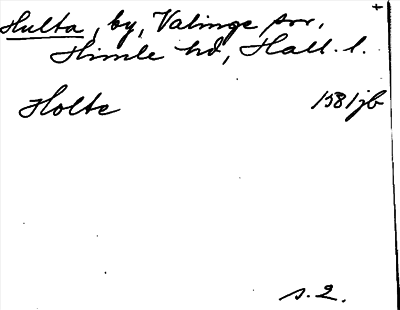 Hulta, by, Valinge sn,
Himle hd, Hall. l.
Holte 1581 jb
s. 2.